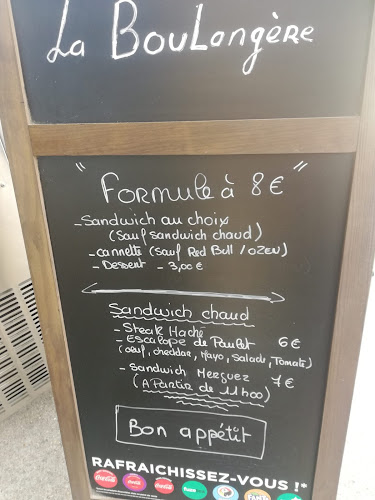 La BouLangère
"Formule à 8€"
- Sandwich au choix
(Sauf Sandwich chaud)
- cannette (sauf Red Bull / OZEN)
- Dessert - 3,00 €
Sandwich chaud
- Steak Haché
- Escalope de Poulet 6€
(oeuf, cheddar, Mayo, Salade, Tomate)
- Sandwich Merguez 7€
(A Partir de 11h00)
Bon appétit
RAFRAICHISSEZ-VOUS !*
Coca-Cola